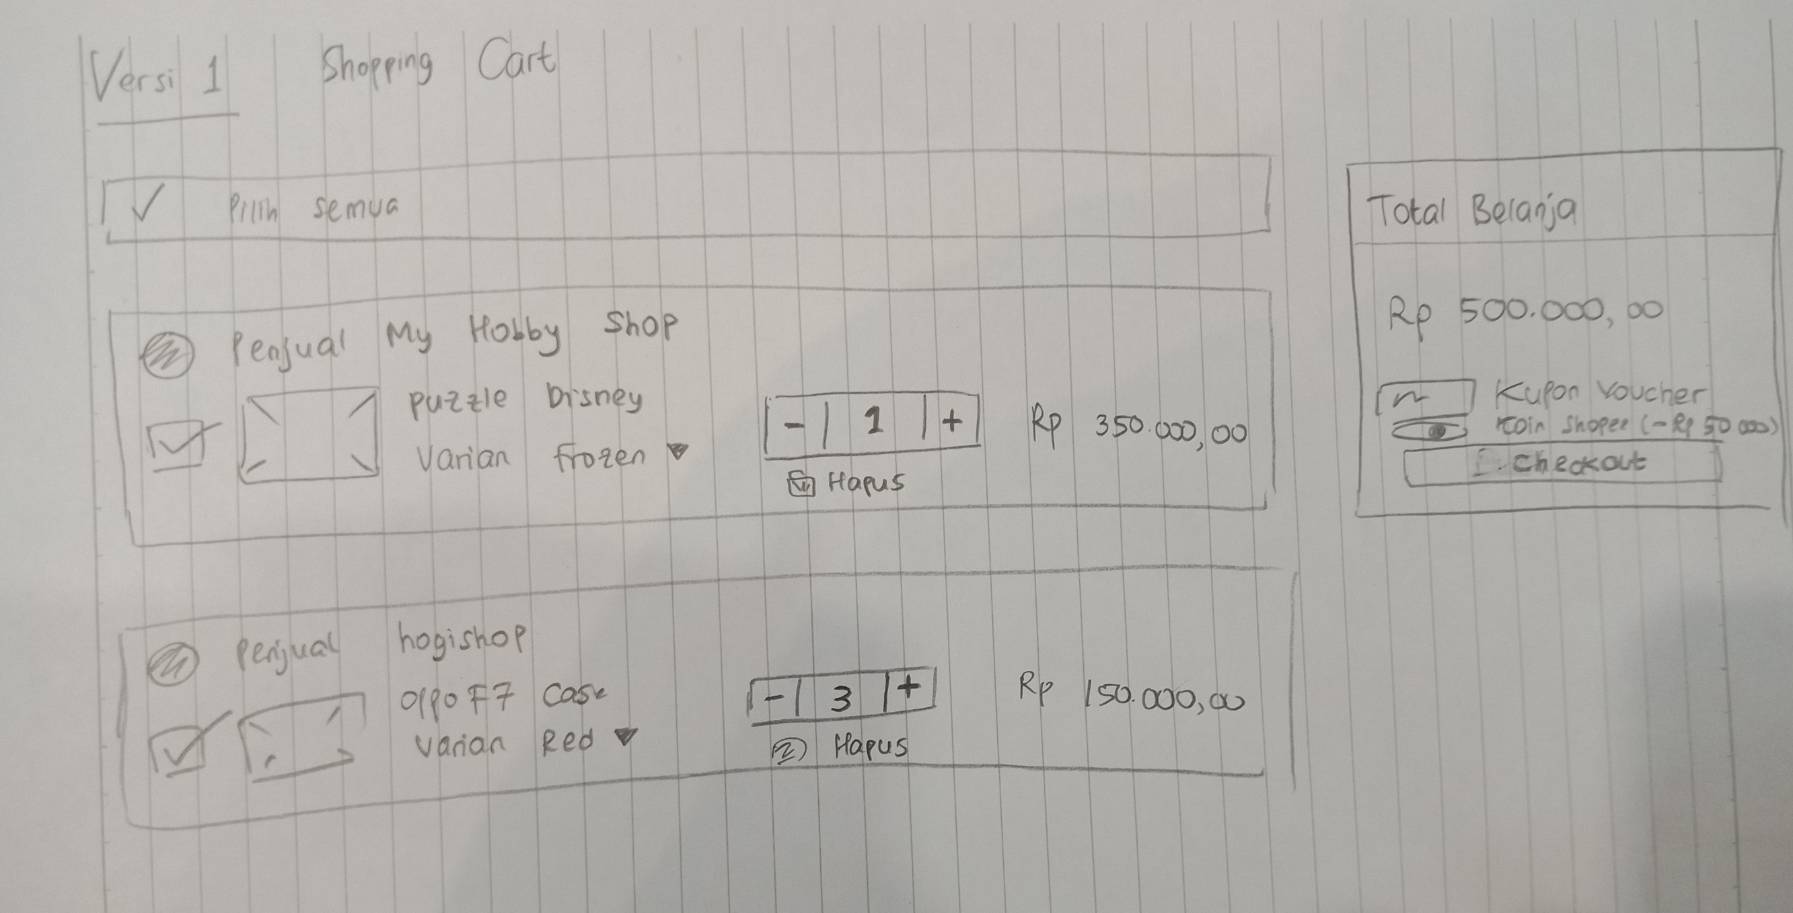 Versi 1
Shopping Cart
Pilih semua
Penjual My Hobby Shop
Puzzle Disney
Varian frozen
- 1 +
Rp 350.000,00
Hapus
Penjual hogishop
Oppo F7 Case
Varian Red
- 3 +
Rp 150.000,00
Hapus
Total Belanja
Rp 500.000,00
Kupon Voucher
Koin Shopee (-Rp 50 000)
Checkout